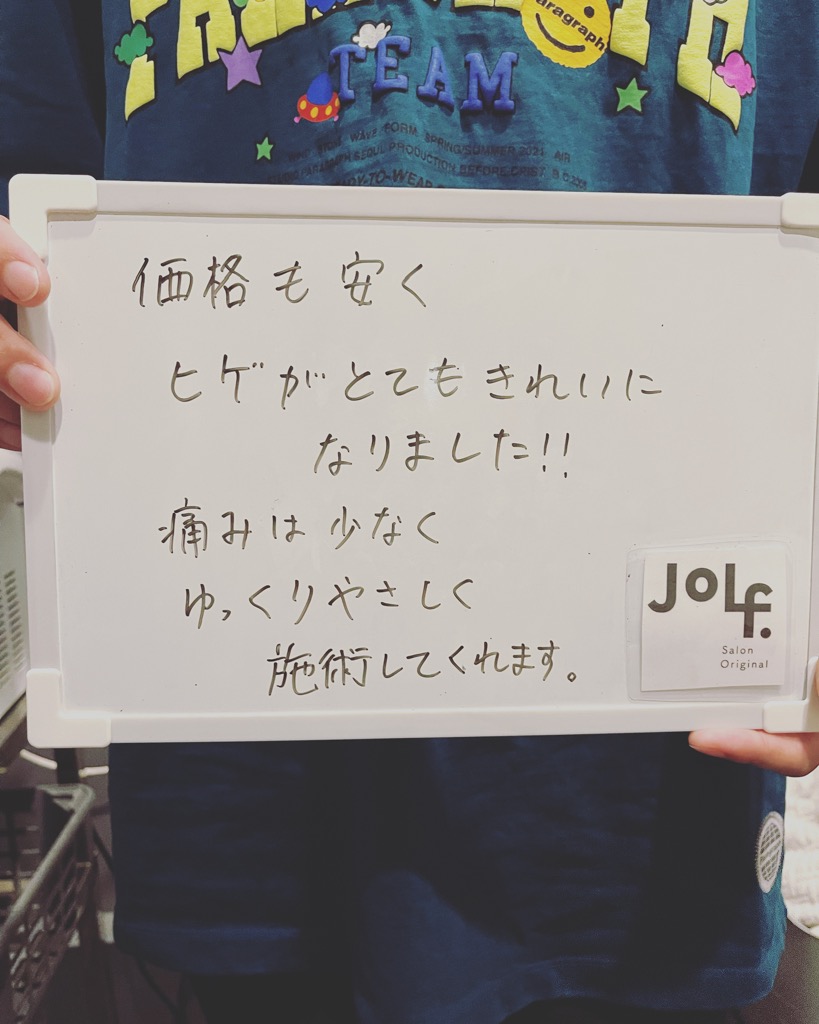 aragraph
TEAM
WAVE FORM SPRING/SUMMER 2021 AIR
SEOUL PRODUCTION
価格も安く
ヒゲがとてもきれいに
なりました!!
痛みは少なく
ゆっくりやさしく
施術してくれます。
JOLF.
Salon
Original